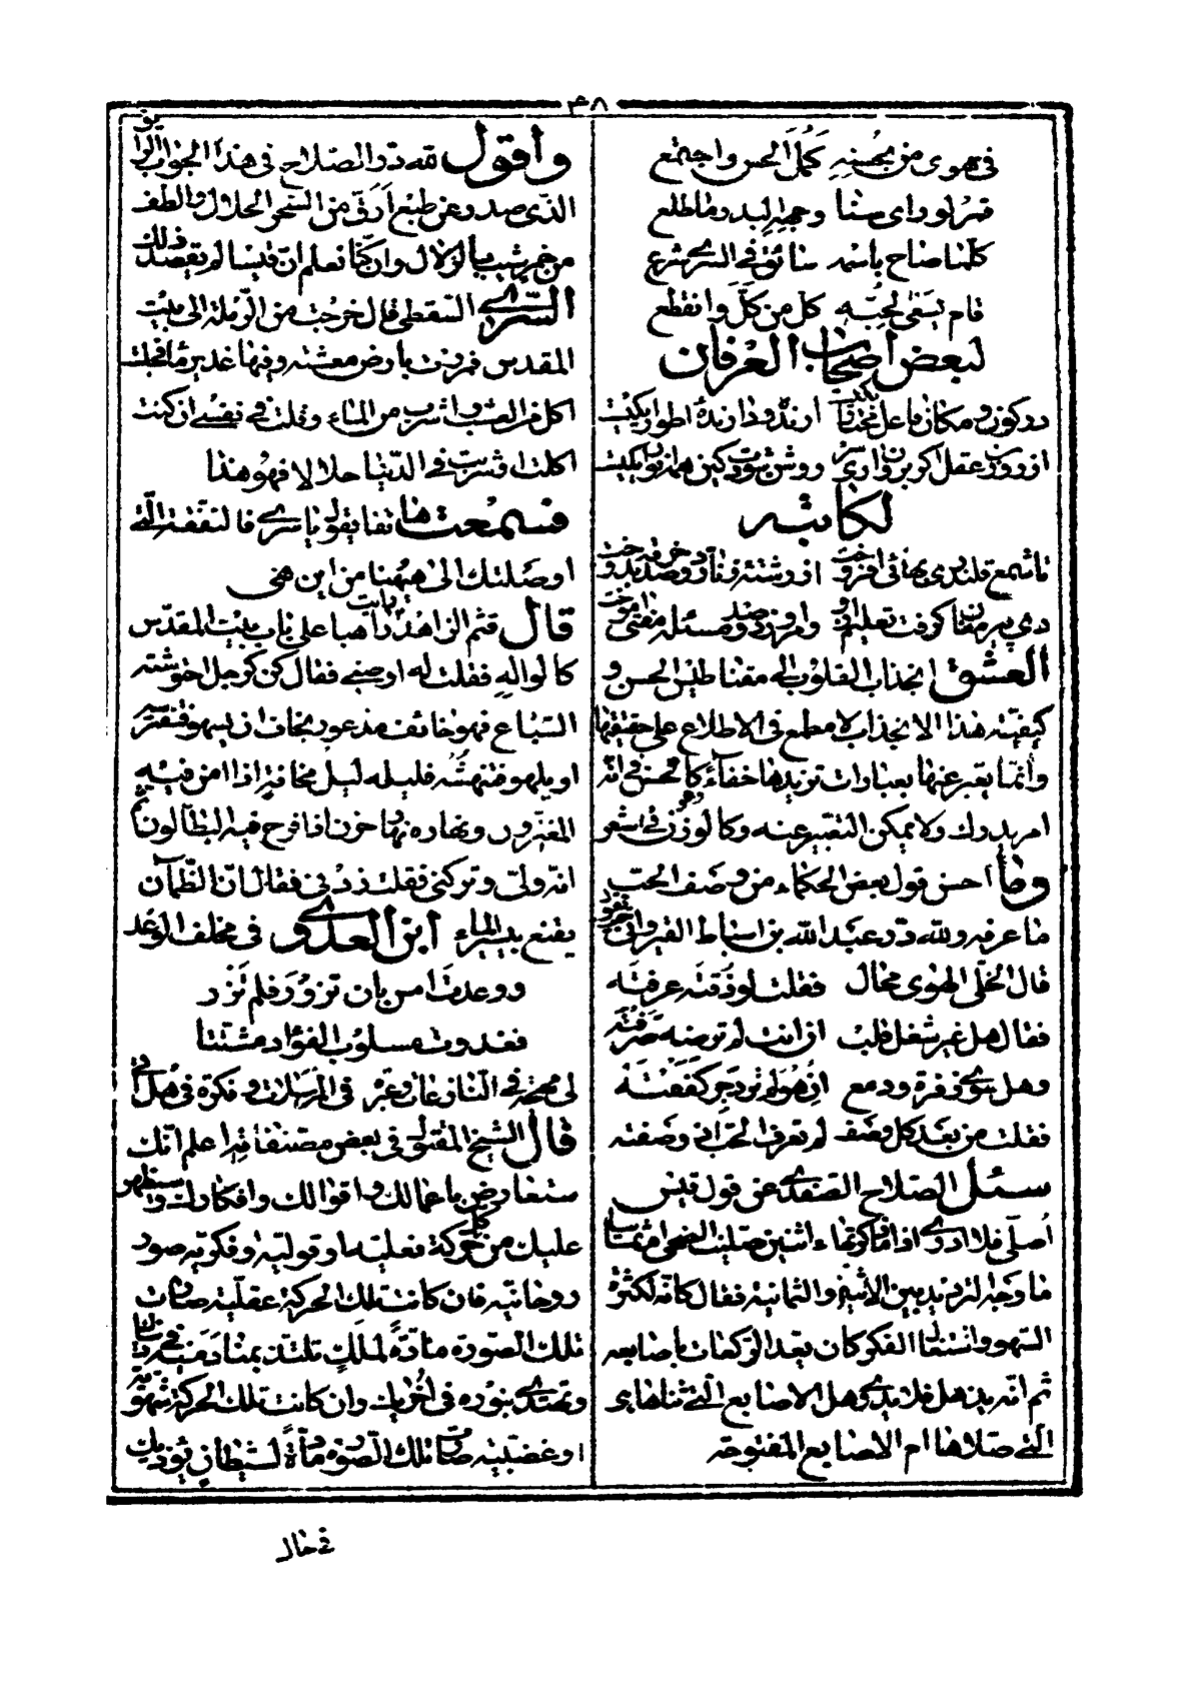 ٣٨
في هوى من بحسنه كَمُلَ الحسن واجتمع
قمر لو راى سنا وجهه البدر ما طلع
كلنا صاح باسمه سائق في السرى شرع
قام يسقى لحبّه كل من كلّ وانقطع
لبعض اصحاب العرفان
در كون و مكان فاعل مختار يكيست ارنده و دارندهٔ اطوار يكيست
از روزن عقل اكر برون ارى سر روشن شودت كين همه انوار يكيست
لكاتبه
تا شمع قلندرى بهائى افروخت از رشته زنار دو صد خرقه بدوخت
دى پير مغان كرفت تعليم از او و امروز دو صد مسئله مفتى اموخت
العشق انجذاب القلوب الى مقناطيس الحسن و
كيفيّة هذا الانجذاب لا مطمع في الاطلاع على حقيقتها
وانّما يعبّر عنها بعبارات تزيدها خفاءً وهو كالحسن في انه
امر يدرك ولا يمكن التعبير عنه وكالوزن في الشعر
وما احسن قول بعض الحكماء من وصف الحب
ما عرفه ولله درّ عبد الله بن اسباط القيروانى حيث يقول
قال الخلّى الهوى محال فقلت لو ذقته عرفته
فقال هل غير شغل قلب ان انت لم ترضه صرفته
وهل سوى زفرة ودمع ان هو لم يزدجر كففته
فقلت من بعد كل وصف لم تعرف الحبّ اذ وصفته
سئل الصلاح الصفدى عن قول قيس
اُصلّى فلا ادرى اذا ما ذكرتها ءاثنين صلّيت الضحى ام ثمانيا
ما وجه الترديد بين الاثنين والثمانية فقال كانّه لكثرة
السهو واشتغال الفكر كان يعدّ الركعات باصابعه
ثم انّه يذهل فلا يدرى هل الاصابع الّتي ثناها هى
الّتي صلاها ام الاصابع المفتوحة
واقول لله درّ الصلاح في هذا الجواب الرايق
الذى صدر عن طبع ارقّ من السّحر الحلال والطف
من خمر شيب بالزلال وان كنّا نعلم انّ قيسا لم يقصد ذلك
السّرىّ السّقطى قال خرجت من الرّملة الى بيت
المقدس فمررت بارض معشبة وفيها غدير ماء فجلست
اكل من العشب واشرب من الماء وقلت في نفسى ان كنت
اكلت او شربت في الدّنيا حلالا فهو هذا
فسمعت هاتفا يقول يا سرى فالنفقة الّتي
اوصلتك الى هيهنا من اين هي
قال قثم الزاهد رايت راهبا على باب بيت المقدّس
كالواله فقلت له اوصنى فقال كن كرجل احتوشته
السّباع فهو خائف مذعور يخاف ان يسهو فتفترسه
او يلهو فتنهشه فليله ليل مخافة اذا امن فيه
المغترّون ونهاره نهار حزن اذا فرح فيه البطّالون
انّه ولّى وتركنى فقلت زدنى فقال انّ الظّمآن
يقنع بيسير الماء ابن العدوى في مخلف الوعد
ووعدت امس بان تزور فلم تزر
فغدوت مسلوب الفؤاد مشتتا
لى مهجة في النّازعات وعبرة في المرسلات وفكرة في هل اتى
قال الشيخ المقتول في بعض مصنفاته اعلم انّك
ستعارض باعمالك واقوالك وافكارك وسيظهر
عليك من كل حركة فعليّة او قولية او فكرية صور
روحانيّة فان كانت تلك الحركة عقليّة صارت
تلك الصورة مادّة لملك تلتذّ بمنادمته في دنياك
وتهتدى بنوره في اُخراك وان كانت تلك الحركة شهويّة
او غضبيّة صارت تلك الصّورة مادّة لشيطان يؤذيك
في حال